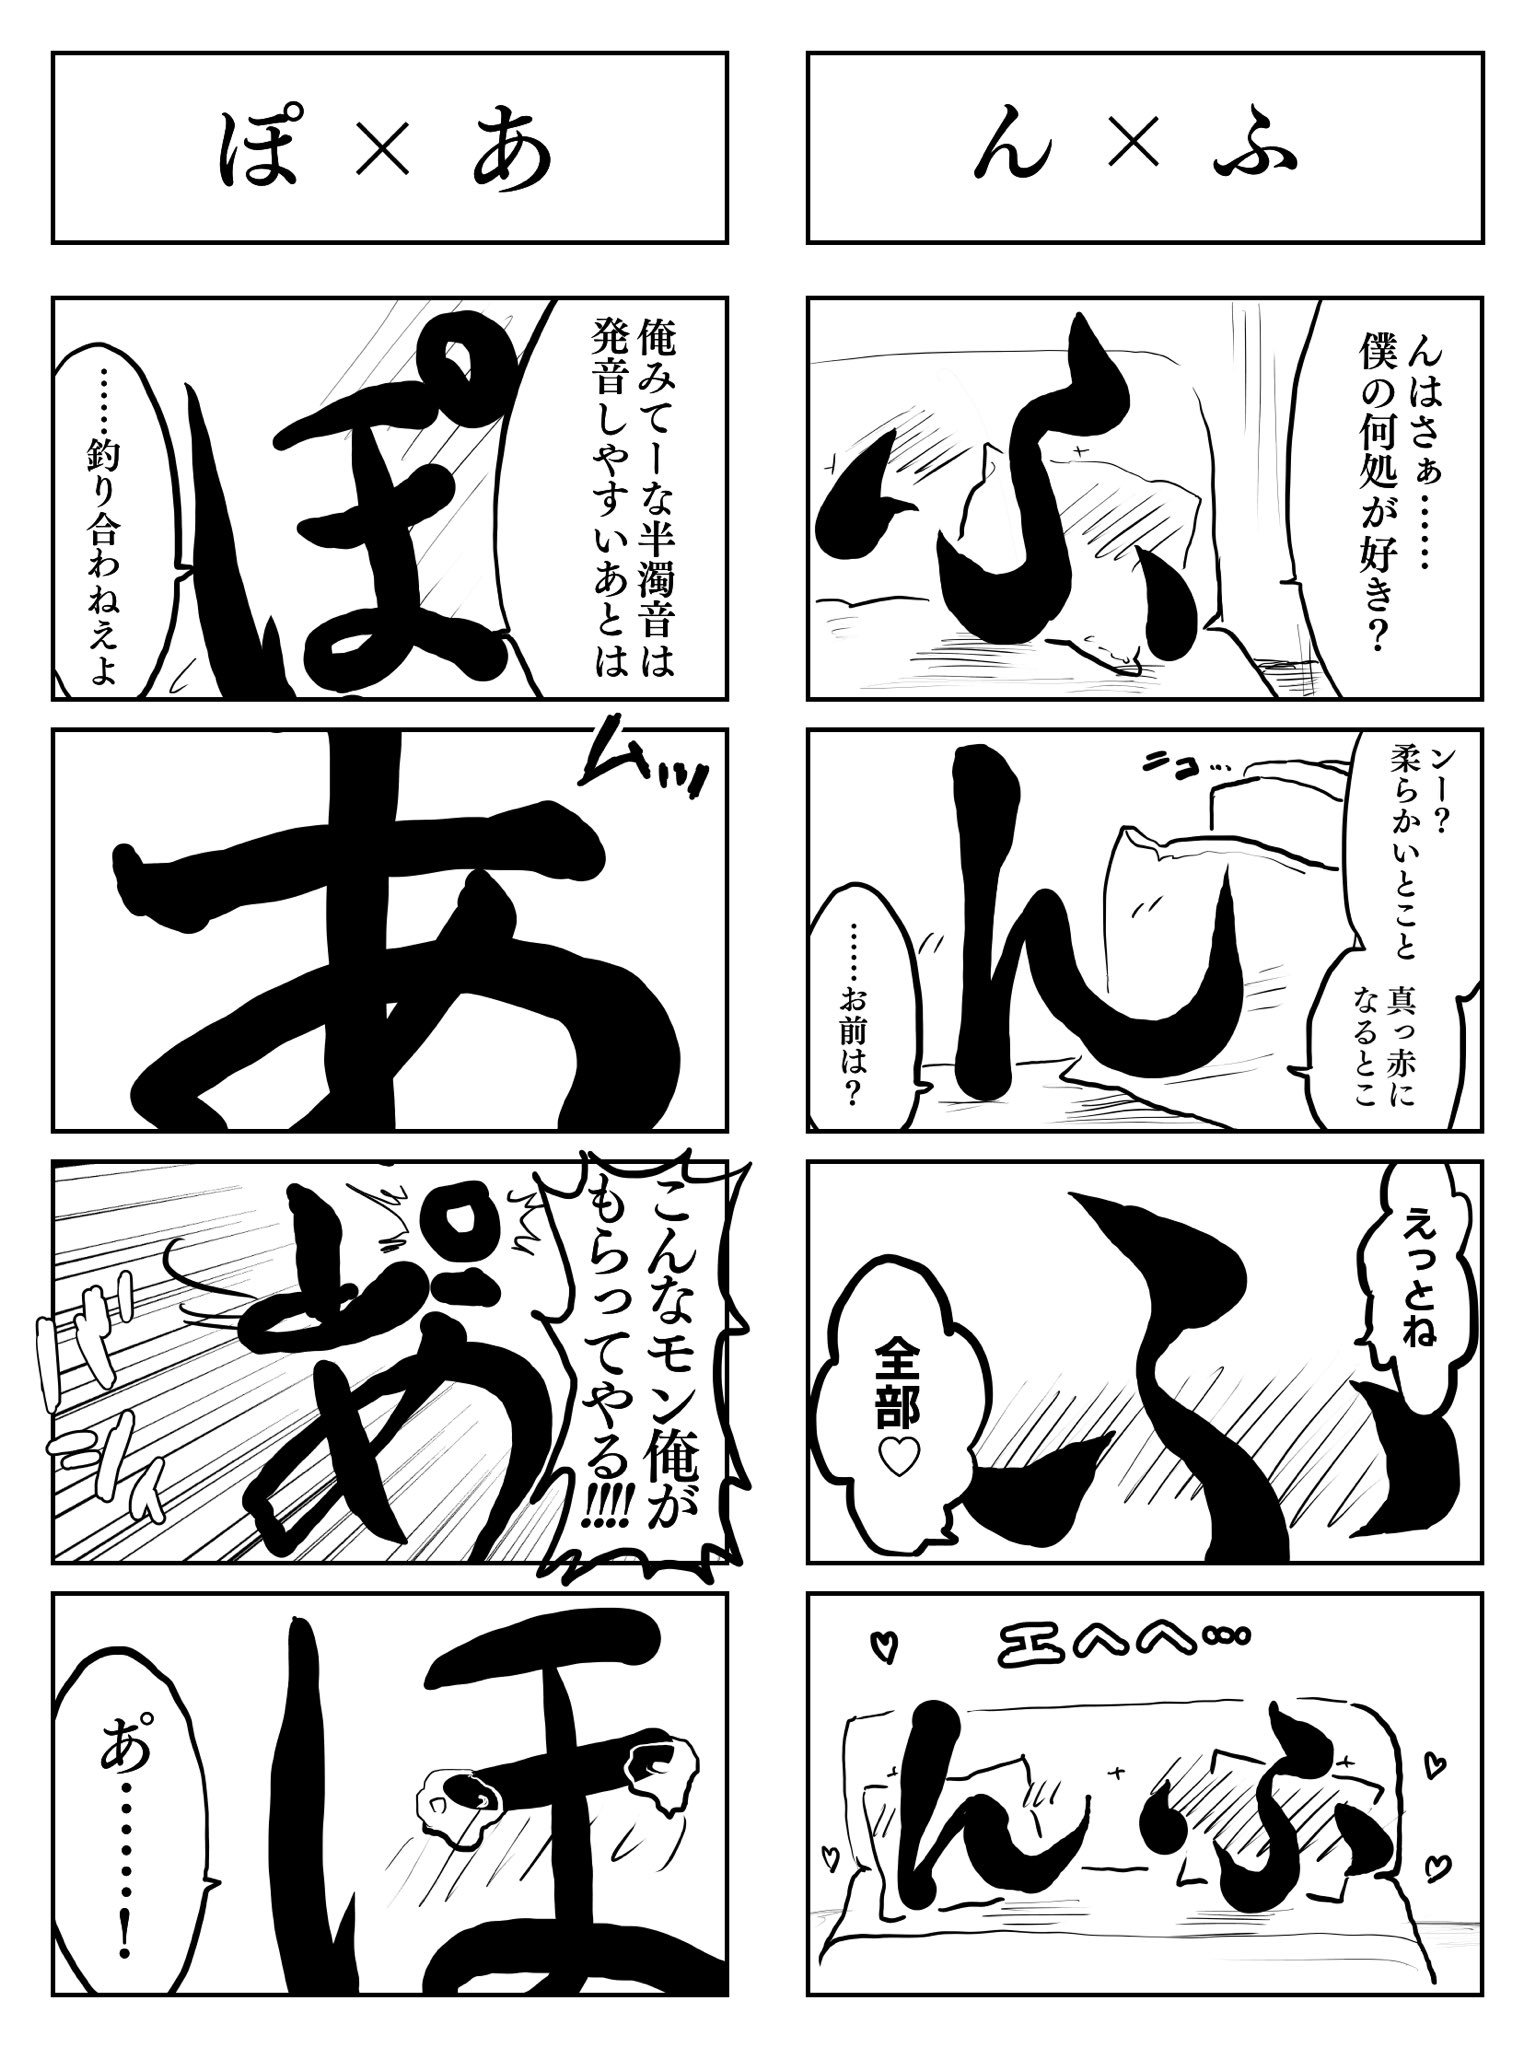 ん×ふ
んはさぁ……
僕の何処が好き?
ふ
ンー?
柔らかいとこと
真っ赤に
なるとこ
ニコ…
ん
……お前は?
えっとね
ふ
全部♡
エヘヘ…
ふ
ん
ぽ×あ
俺みてーな半濁音は
発音しやすいあとは
ぽ
……釣り合わねえよ
ムッ
あ
こんなモン俺が
もらってやる!!!!
あ゚
ガシィ
ほ
あ゚………!